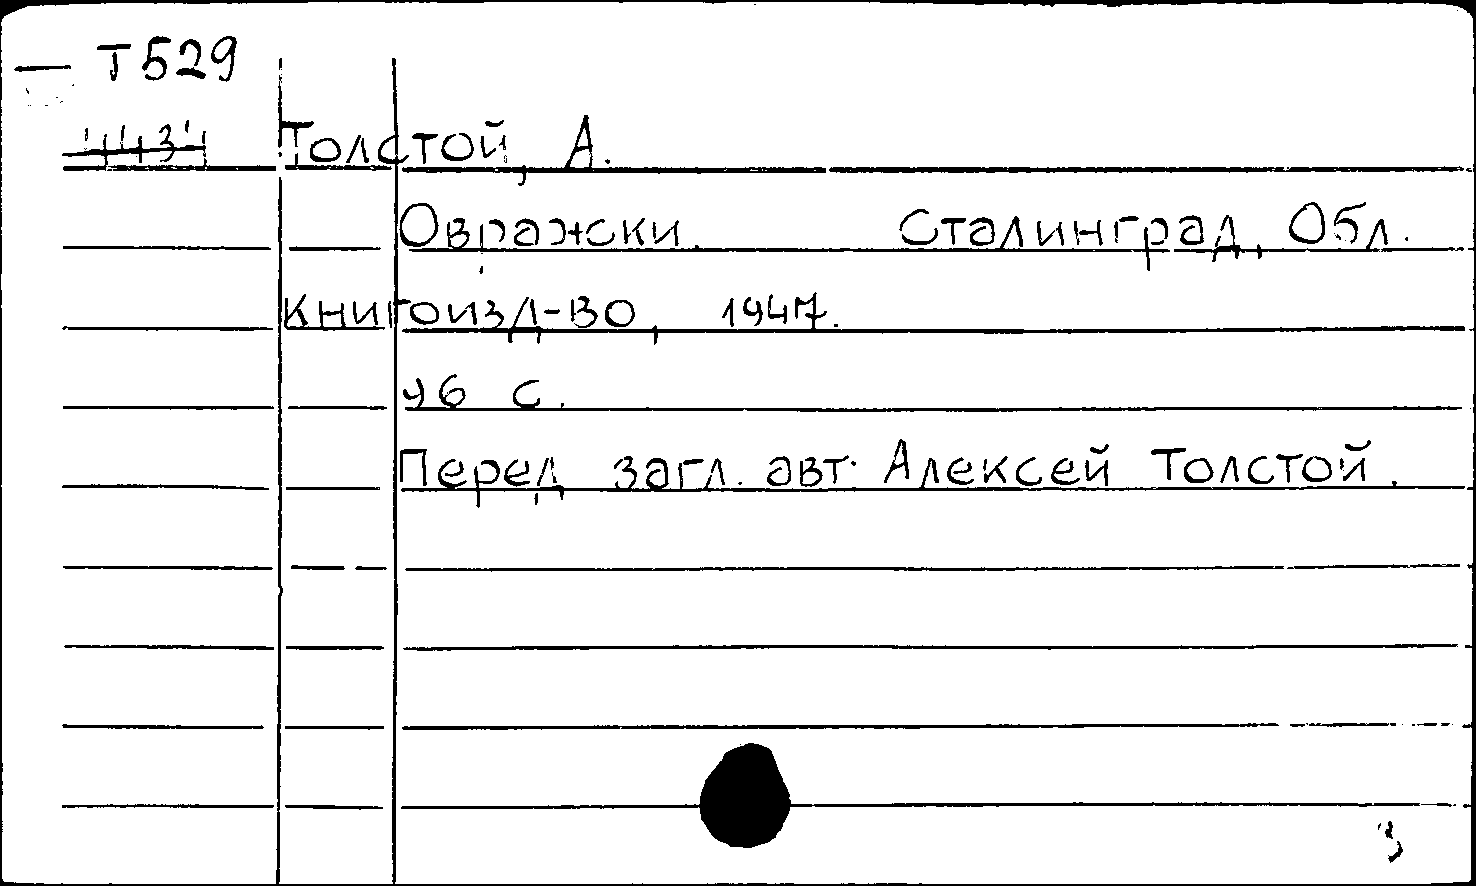 — Т529
Толстой, А.
Овражски. Сталинград, Обл.
книгоизд-во, 1947.
96 с.
Перед загл. авт. Алексей Толстой.
3